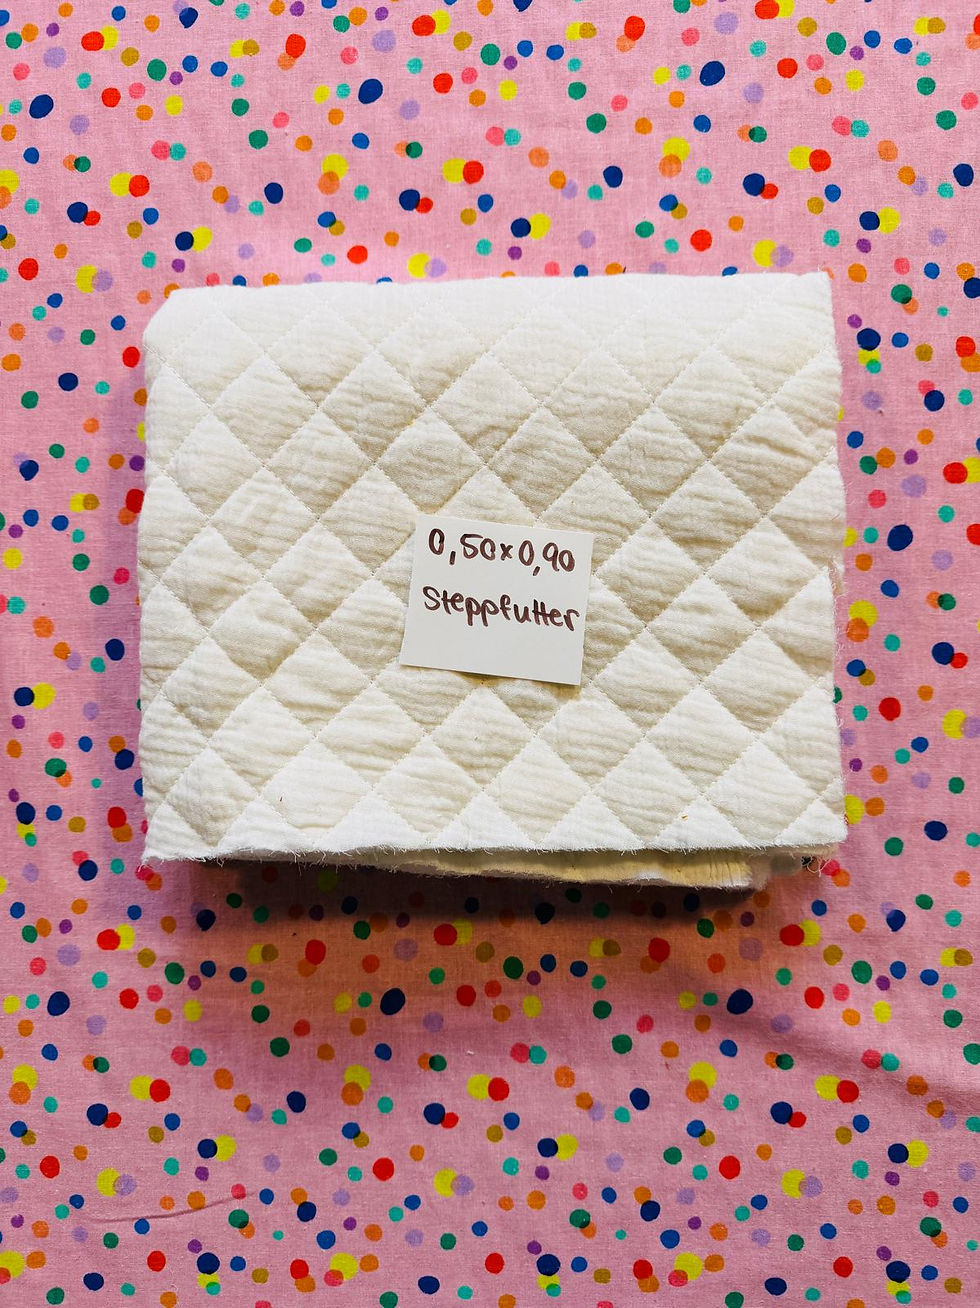 0,50x0,90
Steppfutter